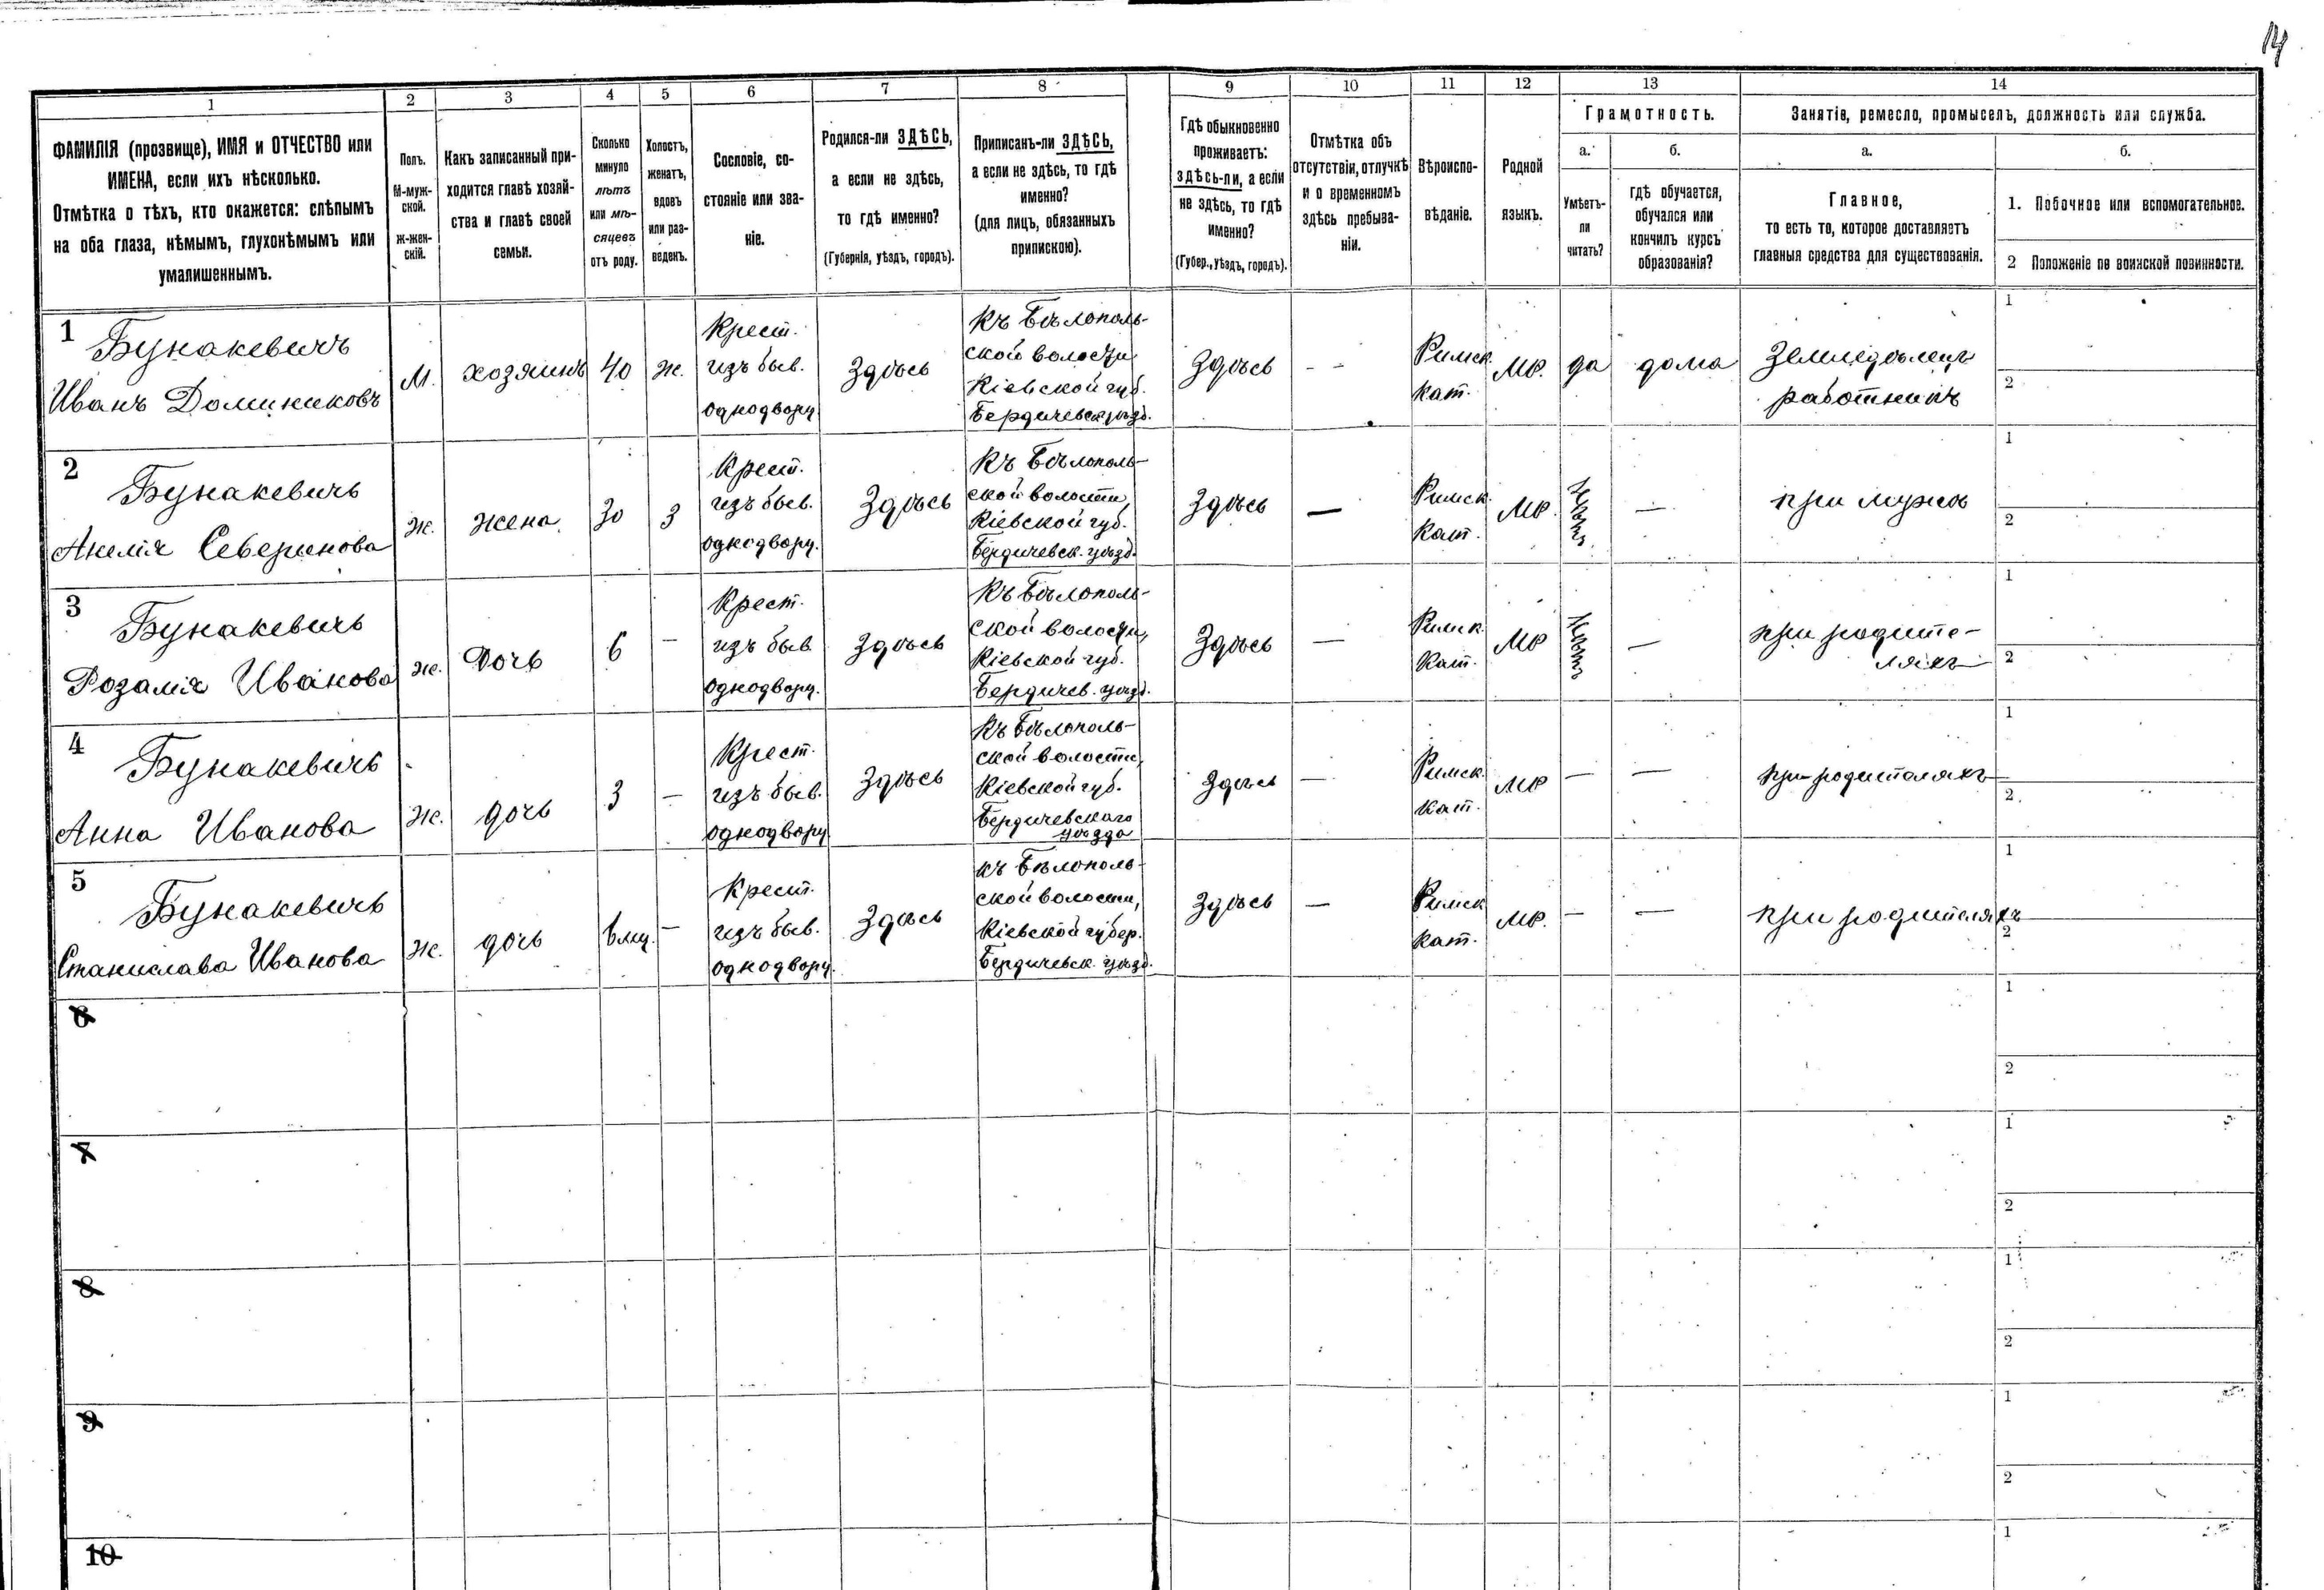 14
1 2 3 4 5 6 7 8 9 10 11 12 13 14
ФАМИЛІЯ (прозвище), ИМЯ и ОТЧЕСТВО или
ИМЕНА, если ихъ нѣсколько.
Отмѣтка о тѣхъ, кто окажется: слѣпымъ
на оба глаза, нѣмымъ, глухонѣмымъ или
умалишеннымъ.
Полъ.
М-муж-
ской.
Ж-жен-
скій.
Какъ записанный при-
ходится главѣ хозяй-
ства и главѣ своей
семьи.
Сколько
минуло
лѣтъ
или мѣ-
сяцевъ
отъ роду.
Холостъ,
женатъ,
вдовъ
или раз-
веденъ.
Сословіе, со-
стояніе или зва-
ніе.
Родился-ли ЗДѢСЬ,
а если не здѣсь,
то гдѣ именно?
(Губернія, уѣздъ, городъ).
Приписанъ-ли ЗДѢСЬ,
а если не здѣсь, то гдѣ
именно?
(для лицъ, обязанныхъ
припискою).
Гдѣ обыкновенно
проживаетъ:
здѣсь-ли, а если
не здѣсь, то гдѣ
именно?
(Губер., уѣздъ, городъ).
Отмѣтка объ
отсутствіи, отлучкѣ
и о временномъ
здѣсь пребыва-
ніи.
Вѣроиспо-
вѣданіе.
Родной
языкъ.
Грамотность.
а.
Умѣетъ-
ли
читать?
б.
гдѣ обучается,
обучался или
кончилъ курсъ
образованія?
Занятія, ремесло, промыселъ, должность или служба.
а.
Главное,
то есть то, которое доставляетъ
главныя средства для существованія.
б.
1. Побочное или вспомогательное.
2 Положеніе по воинской повинности.
1
Бунакевичъ
Иванъ Доминиковъ
М.
хозяинъ
40
ж.
Крест.
изъ быв.
однодворц
Здѣсь
Къ Бѣлополь-
ской волости
Кіевской губ.
Бердичевск. уѣзд.
Здѣсь
- -
Римск.
кат.
мр.
да
дома
Земледѣлецъ
работникъ
1
2
2
Бунакевичъ
Анелія Северинова
ж.
жена.
30
З
Крест.
изъ быв.
однодворц.
Здѣсь
Къ Бѣлополь-
ской волости
Кіевской губ.
Бердичевск. уѣзд.
Здѣсь
—
Римск.
кат.
мр.
—
при мужѣ
1
2
3
Бунакевичъ
Розалія Иванова
ж.
Дочь
6
—
Крест.
изъ быв
однодворц.
Здѣсь
Къ Бѣлополь-
ской волости,
Кіевской губ.
Бердичев. уѣзд.
Здѣсь
—
Римск.
кат.
мр
—
при родите-
ляхъ
1
2
4
Бунакевичъ
Анна Иванова
ж.
дочь
3
—
Крест.
изъ быв.
однодворц
Здѣсь
Къ Бѣлополь-
ской волости,
Кіевской губ.
Бердичевскаго
уѣзда
Здѣсь
—
Римск.
кат.
мр
—
—
при родителяхъ
1
2
5
Бунакевичъ
Станислава Иванова
ж.
дочь
—
Крест.
изъ быв.
однодворц.
Здѣсь
къ Бѣлополь-
ской волости,
Кіевской губер.
Бердичевск. уѣзд.
Здѣсь
—
Римск
кат.
мр.
—
—
при родителяхъ
1
2
6
1
2
7
1
2
8
1
2
9
1
2
10
1